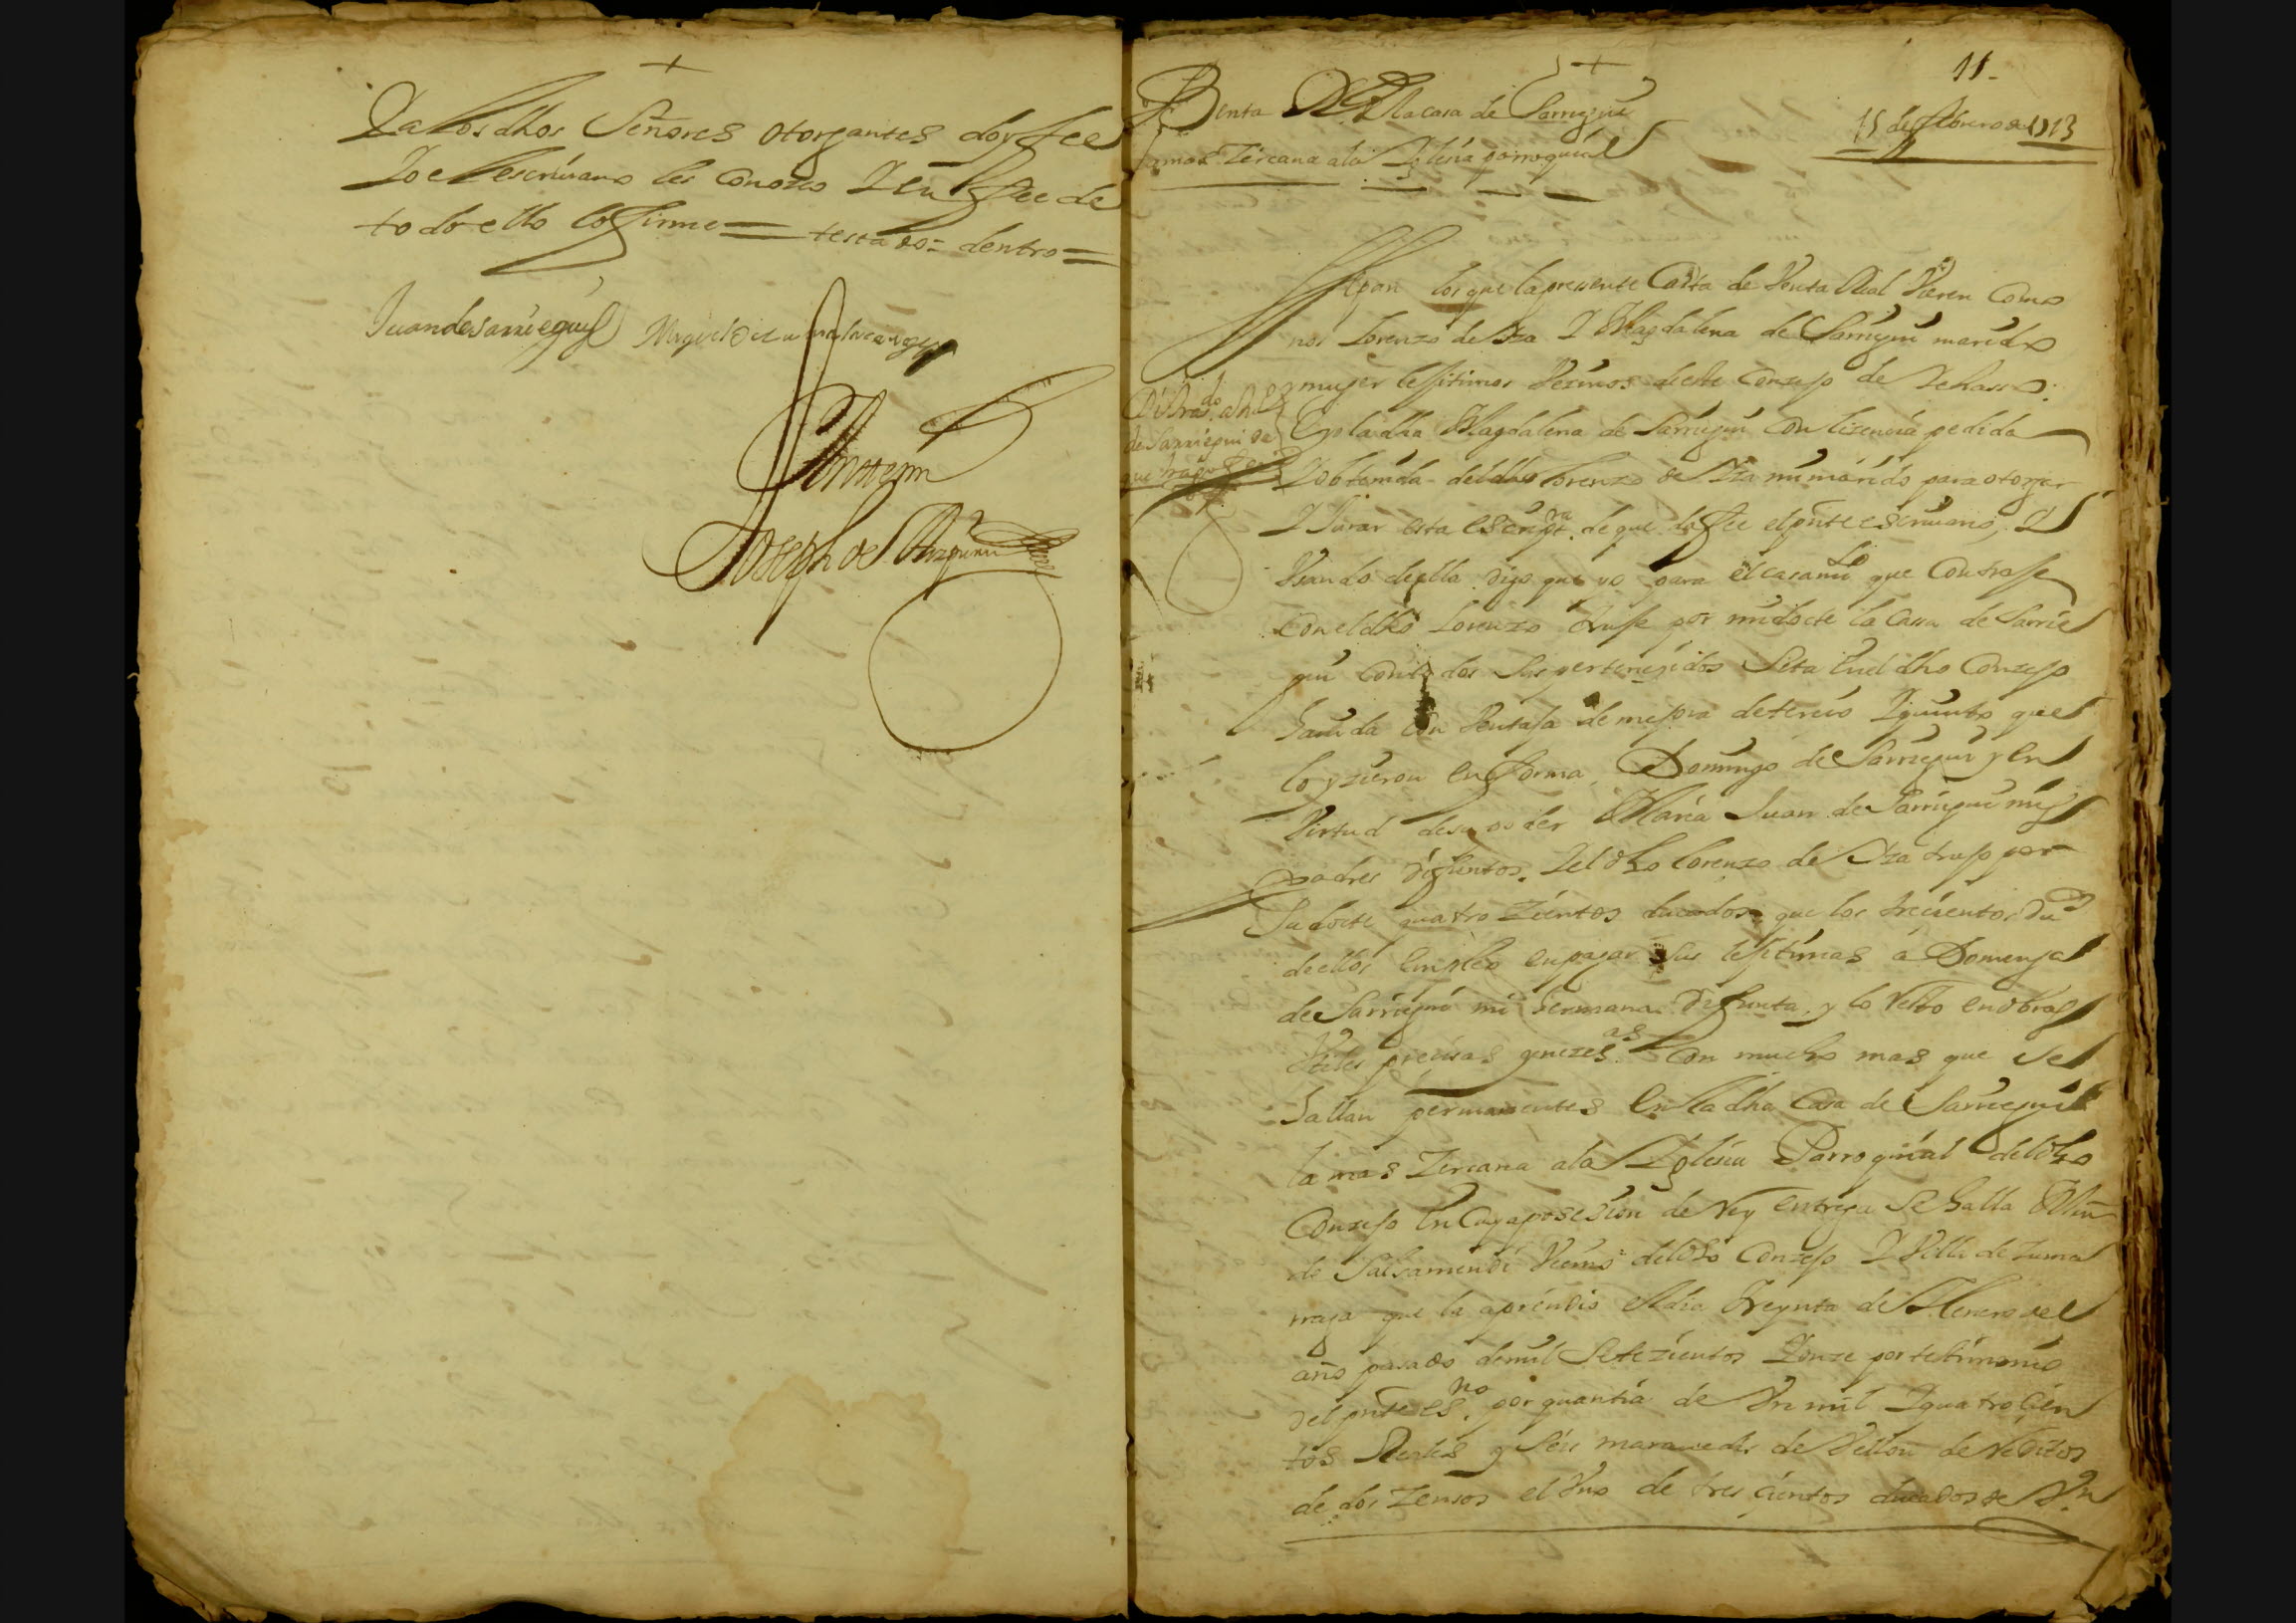 +
Ya los dhos Señores otorgantes doy fee
Yo el escriuano les Conozco Y en fee de
todo ello lo firme = testado = dentro =
Juan de sarriegui Miguel de
Ante mi
Joseph de
+
11-
Benta Rl De la casa de Sarriegui
la mas Zercana a la Iglesia parroquial
15 de febrero de 1713
Sepan los que la presente Carta de Venta Real Vieren Como
nos Lorenzo de Iza Y Magdalena de Sarriegui marido
muger lexitimos Vezinos de este Conzejo de
E yo la dha Magdalena de Sarriegui Con lizencia pedida
Y obtenida del dho Lorenzo de Iza mi marido para otorgar
Y Jurar esta escriptra. de que da fee el pnte escriuano, Y
Vsando de ella digo que yo para el casamto que Contraje
Con el dho Lorenzo truje por mi docte la Cassa de Sarrie
gui Con todos Sus pertenezidos Sita En el dho Conzejo
hauida Con Ventaja de mejora de tercio Y quinto que
lo yzieron En forma Domingo de Sarriegui y En
Virtud de su poder Maria Juan de Sarriegui mis
padres difuntos. Y el dho Lorenzo de Iza trujo por
Su docte quatro Zientos ducados que los trecientos dus
de ellos Empleo En pagar Sus lexitimas a Domenja
de Sarriegui mi hermana difunta, y lo Resto En obras
Vtiles precisas y nezesas. Con mucho mas que Se
hallan permanentes En la dha Casa de Sarriegui
la mas Zercana a la Iglesia Parroquial del dho
Conzejo En Cuya posesion de Rey entrega Se halla Mín
de Salsamendi Vezino del dho Conzejo Y Villa de Zuma
rraga que la aprendio el dia treynta de Henero del
año pasado de mil Setezientos Y onze por testimonio
del pnte esno. por quantia de Vn mil Y quatro Cien
tos Reales y Seis marauedis de Vellon de Reditos
de dos Zensos el Vno de tres cientos ducados de Vn
do
de Sarriegui de